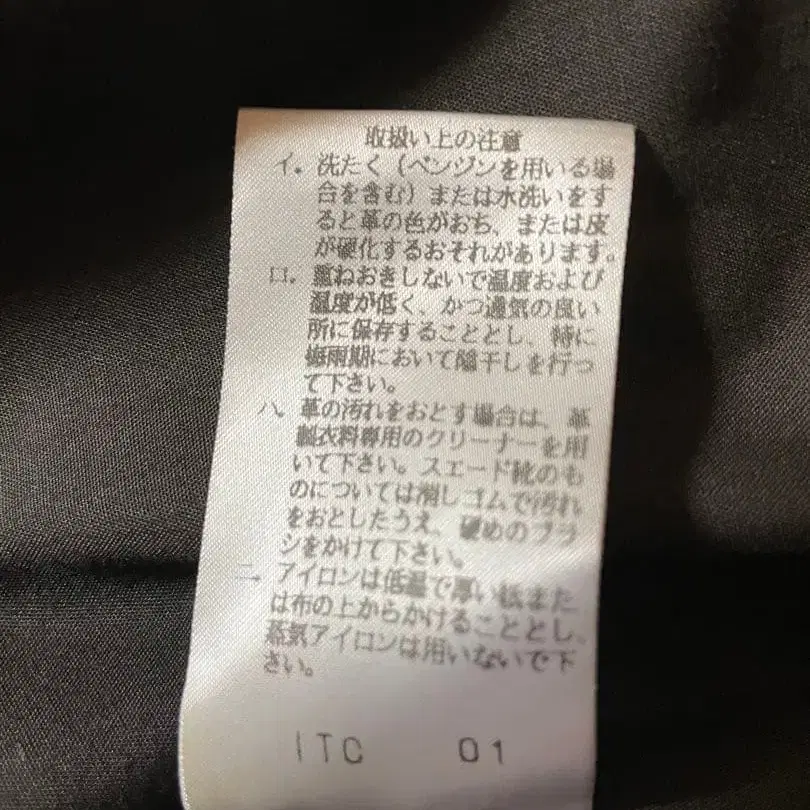 取扱い上の注意
イ. 洗たく（ベンジンを用いる場
合を含む）または水洗いをす
ると革の色がおち、または皮
が硬化するおそれがあります。
ロ. 重ねおきしないで温度および
湿度が低く、かつ通気の良い
所に保存することとし、特に
梅雨期において陰干しを行っ
て下さい。
ハ. 革の汚れをおとす場合は、革
製衣料専用のクリーナーを用
いて下さい。スエード靴のも
のについては消しゴムで汚れ
をおとしたうえ、硬めのブラ
シをかけて下さい。
ニ. アイロンは低温で厚い紙また
は布の上からかけることとし、
蒸気アイロンは用いないで下
さい。
ITC 01